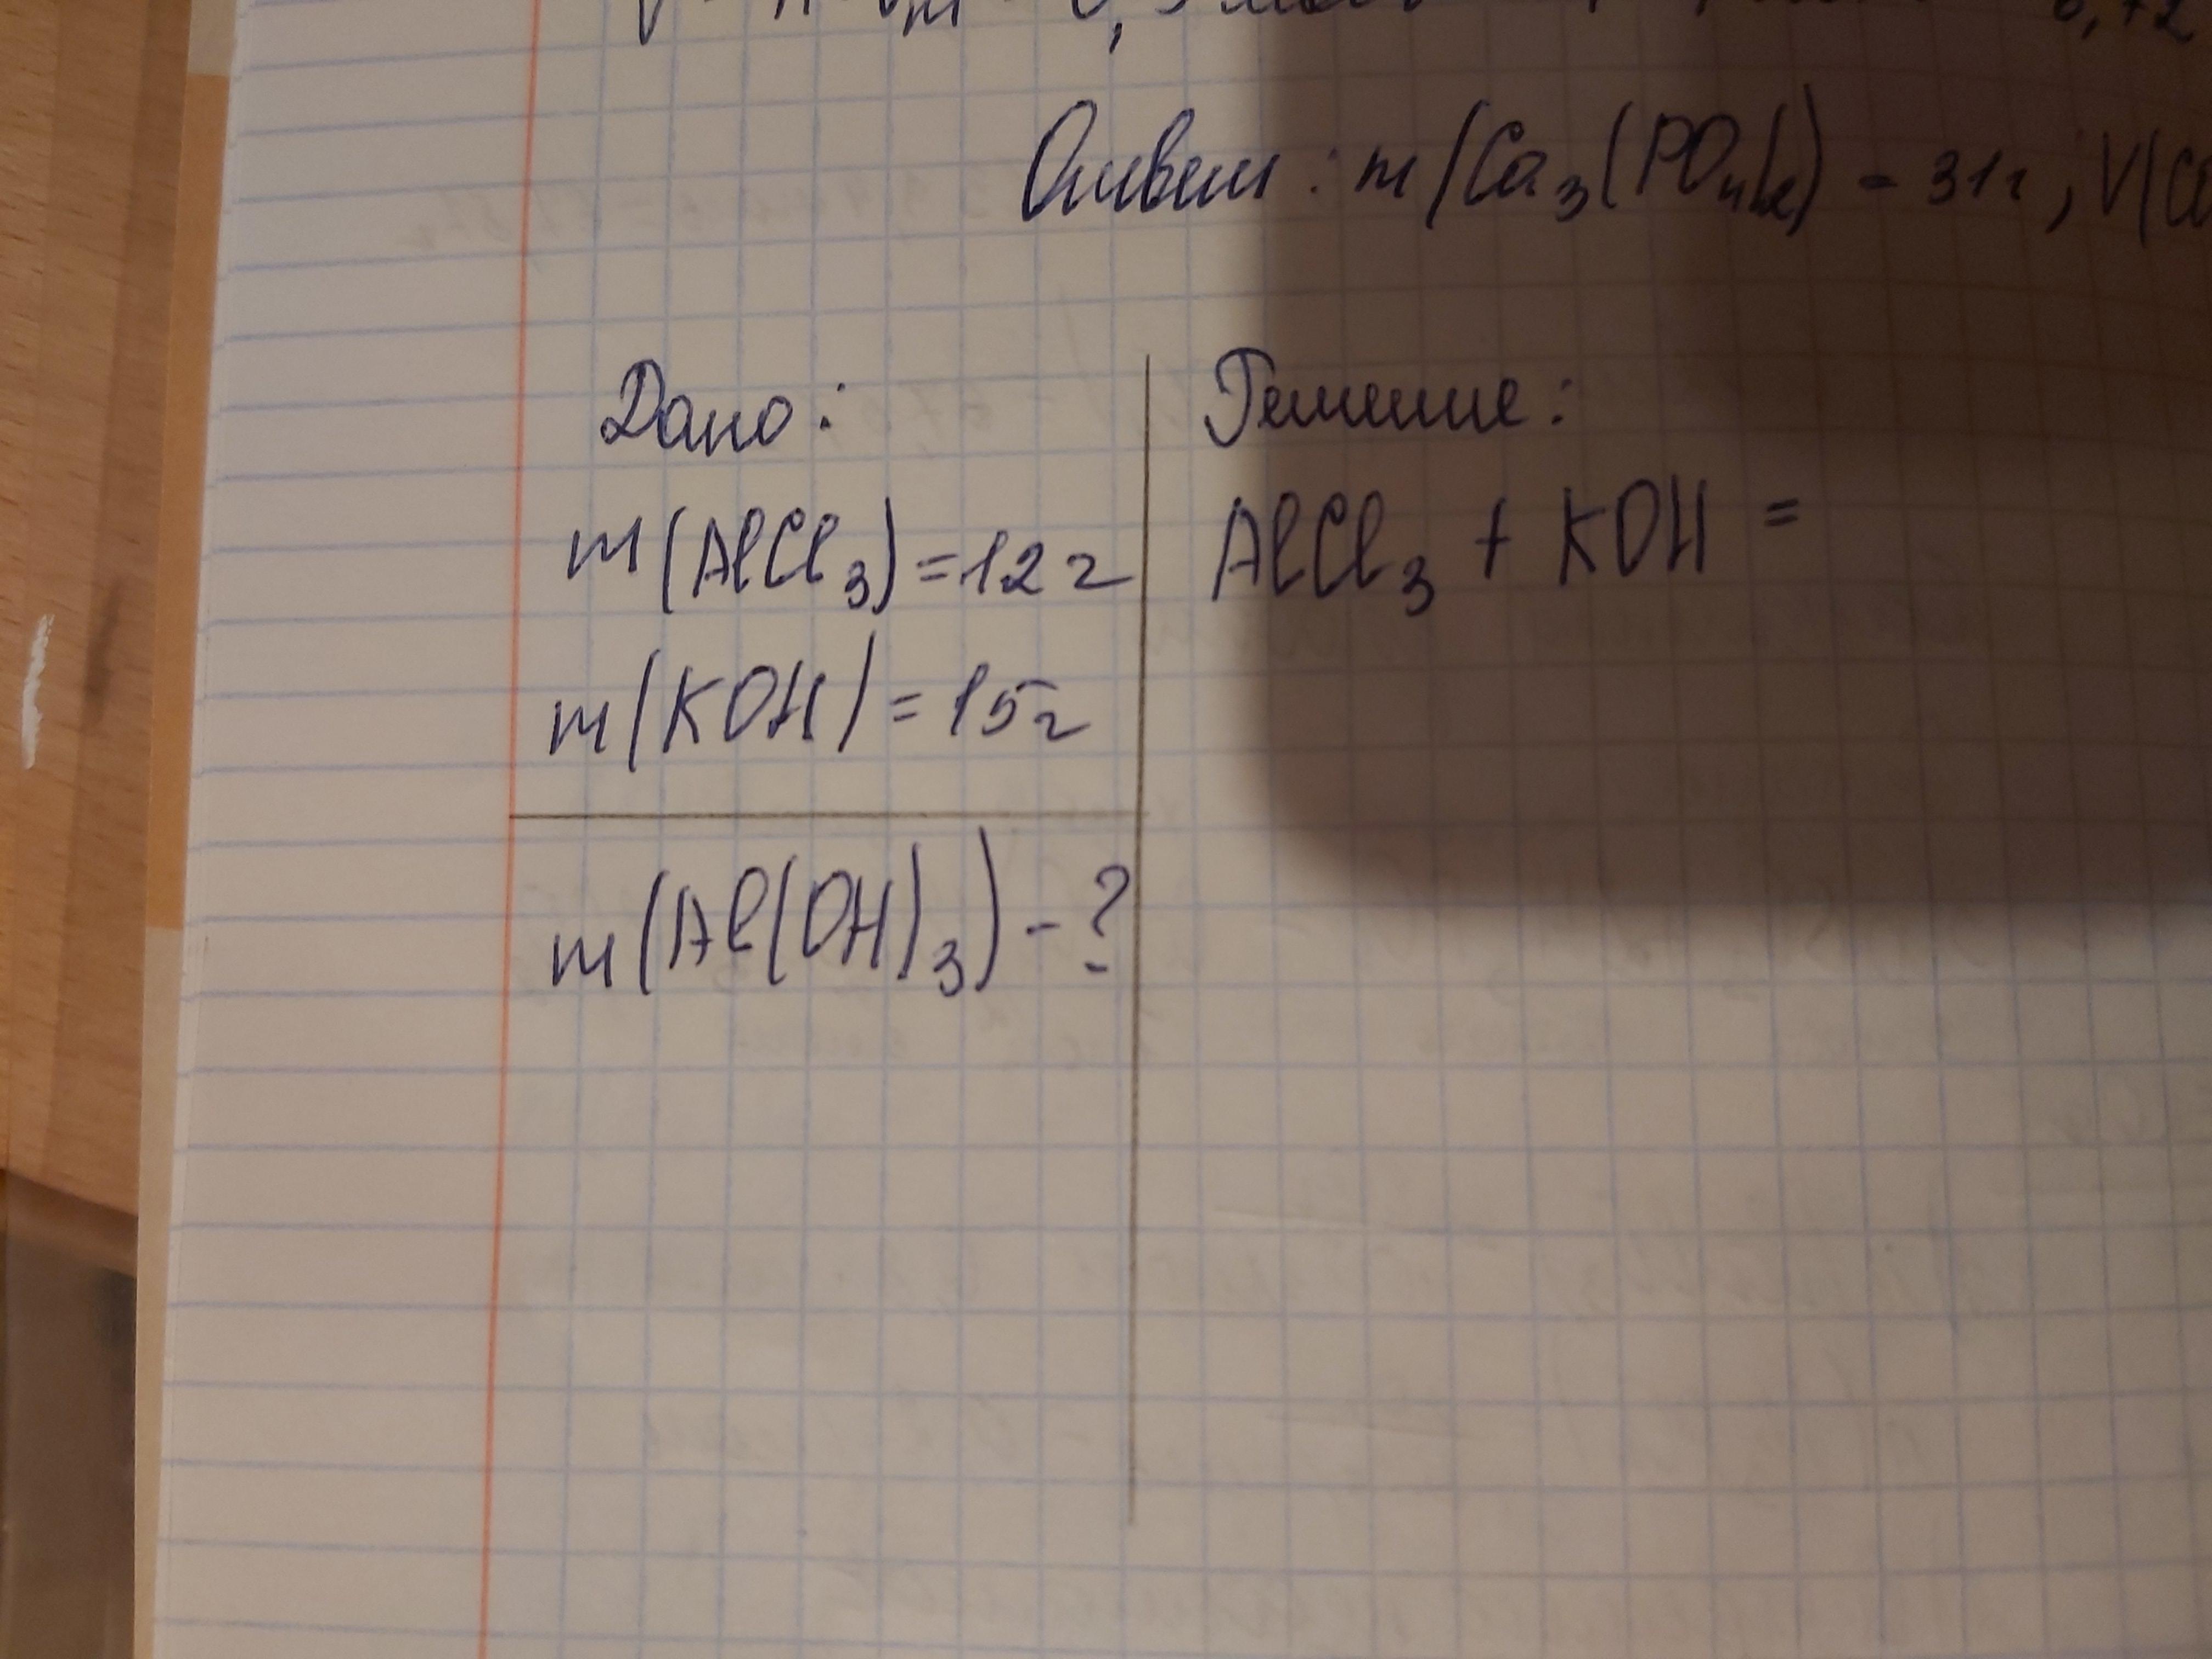 Ответ: m(Ca₃(PO₄)₂) = 31г; V(CO
Дано:
m(AlCl₃) = 12 г
m(KOH) = 15г
m(Al(OH)₃) - ?
Решение:
AlCl₃ + KOH =